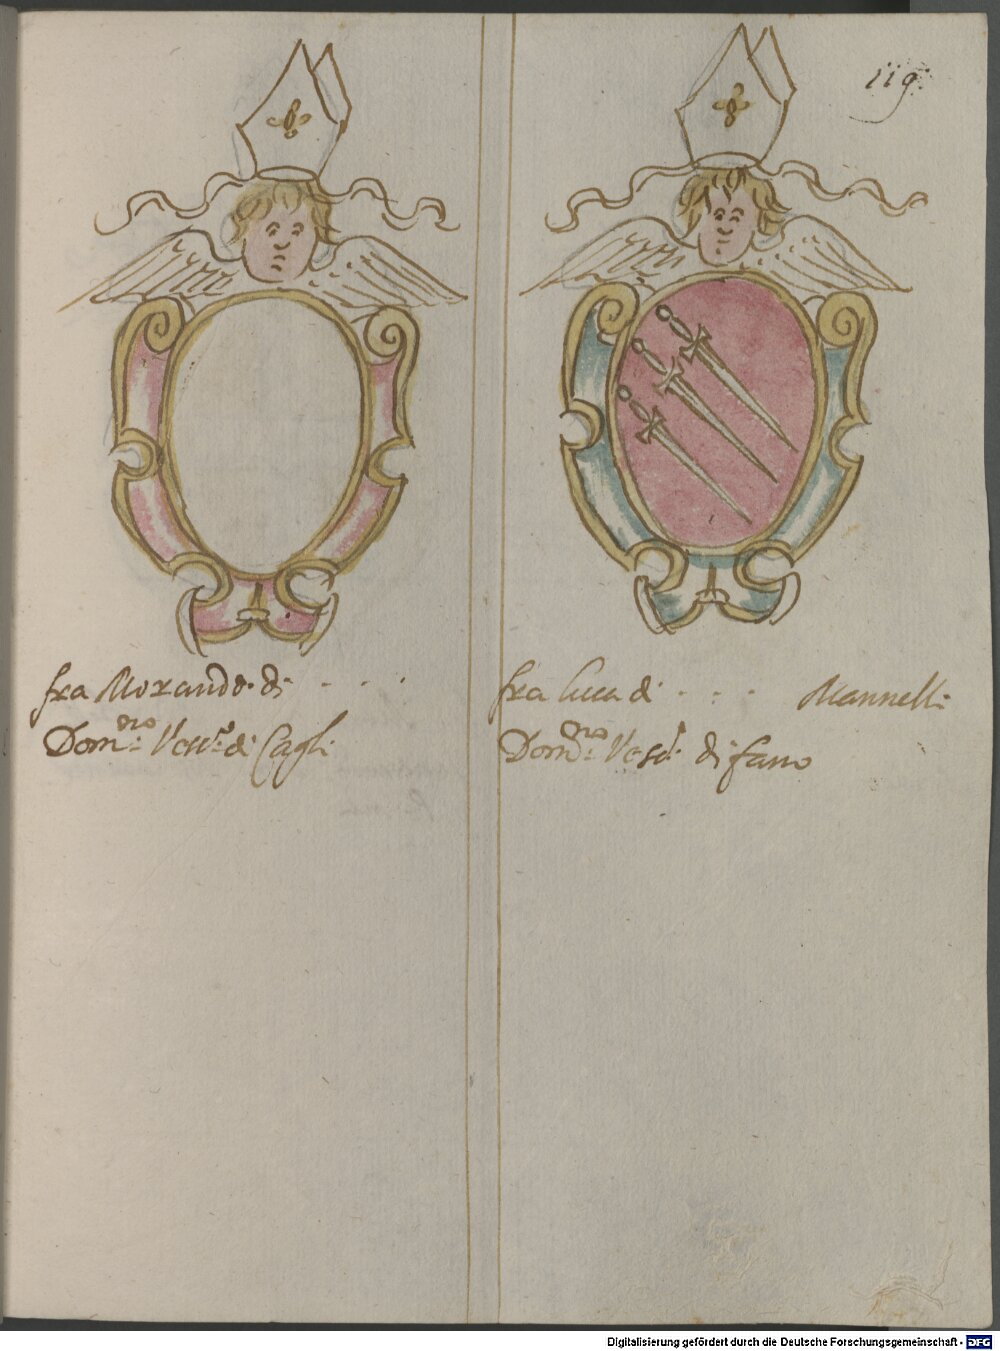 119.
fra Morando di . . .
Dom.no Vesc.o di Cagli
fra Luca di . . . Mannelli
Dom.no Vesc.o di fano
Digitalisierung gefördert durch die Deutsche Forschungsgemeinschaft - DFG